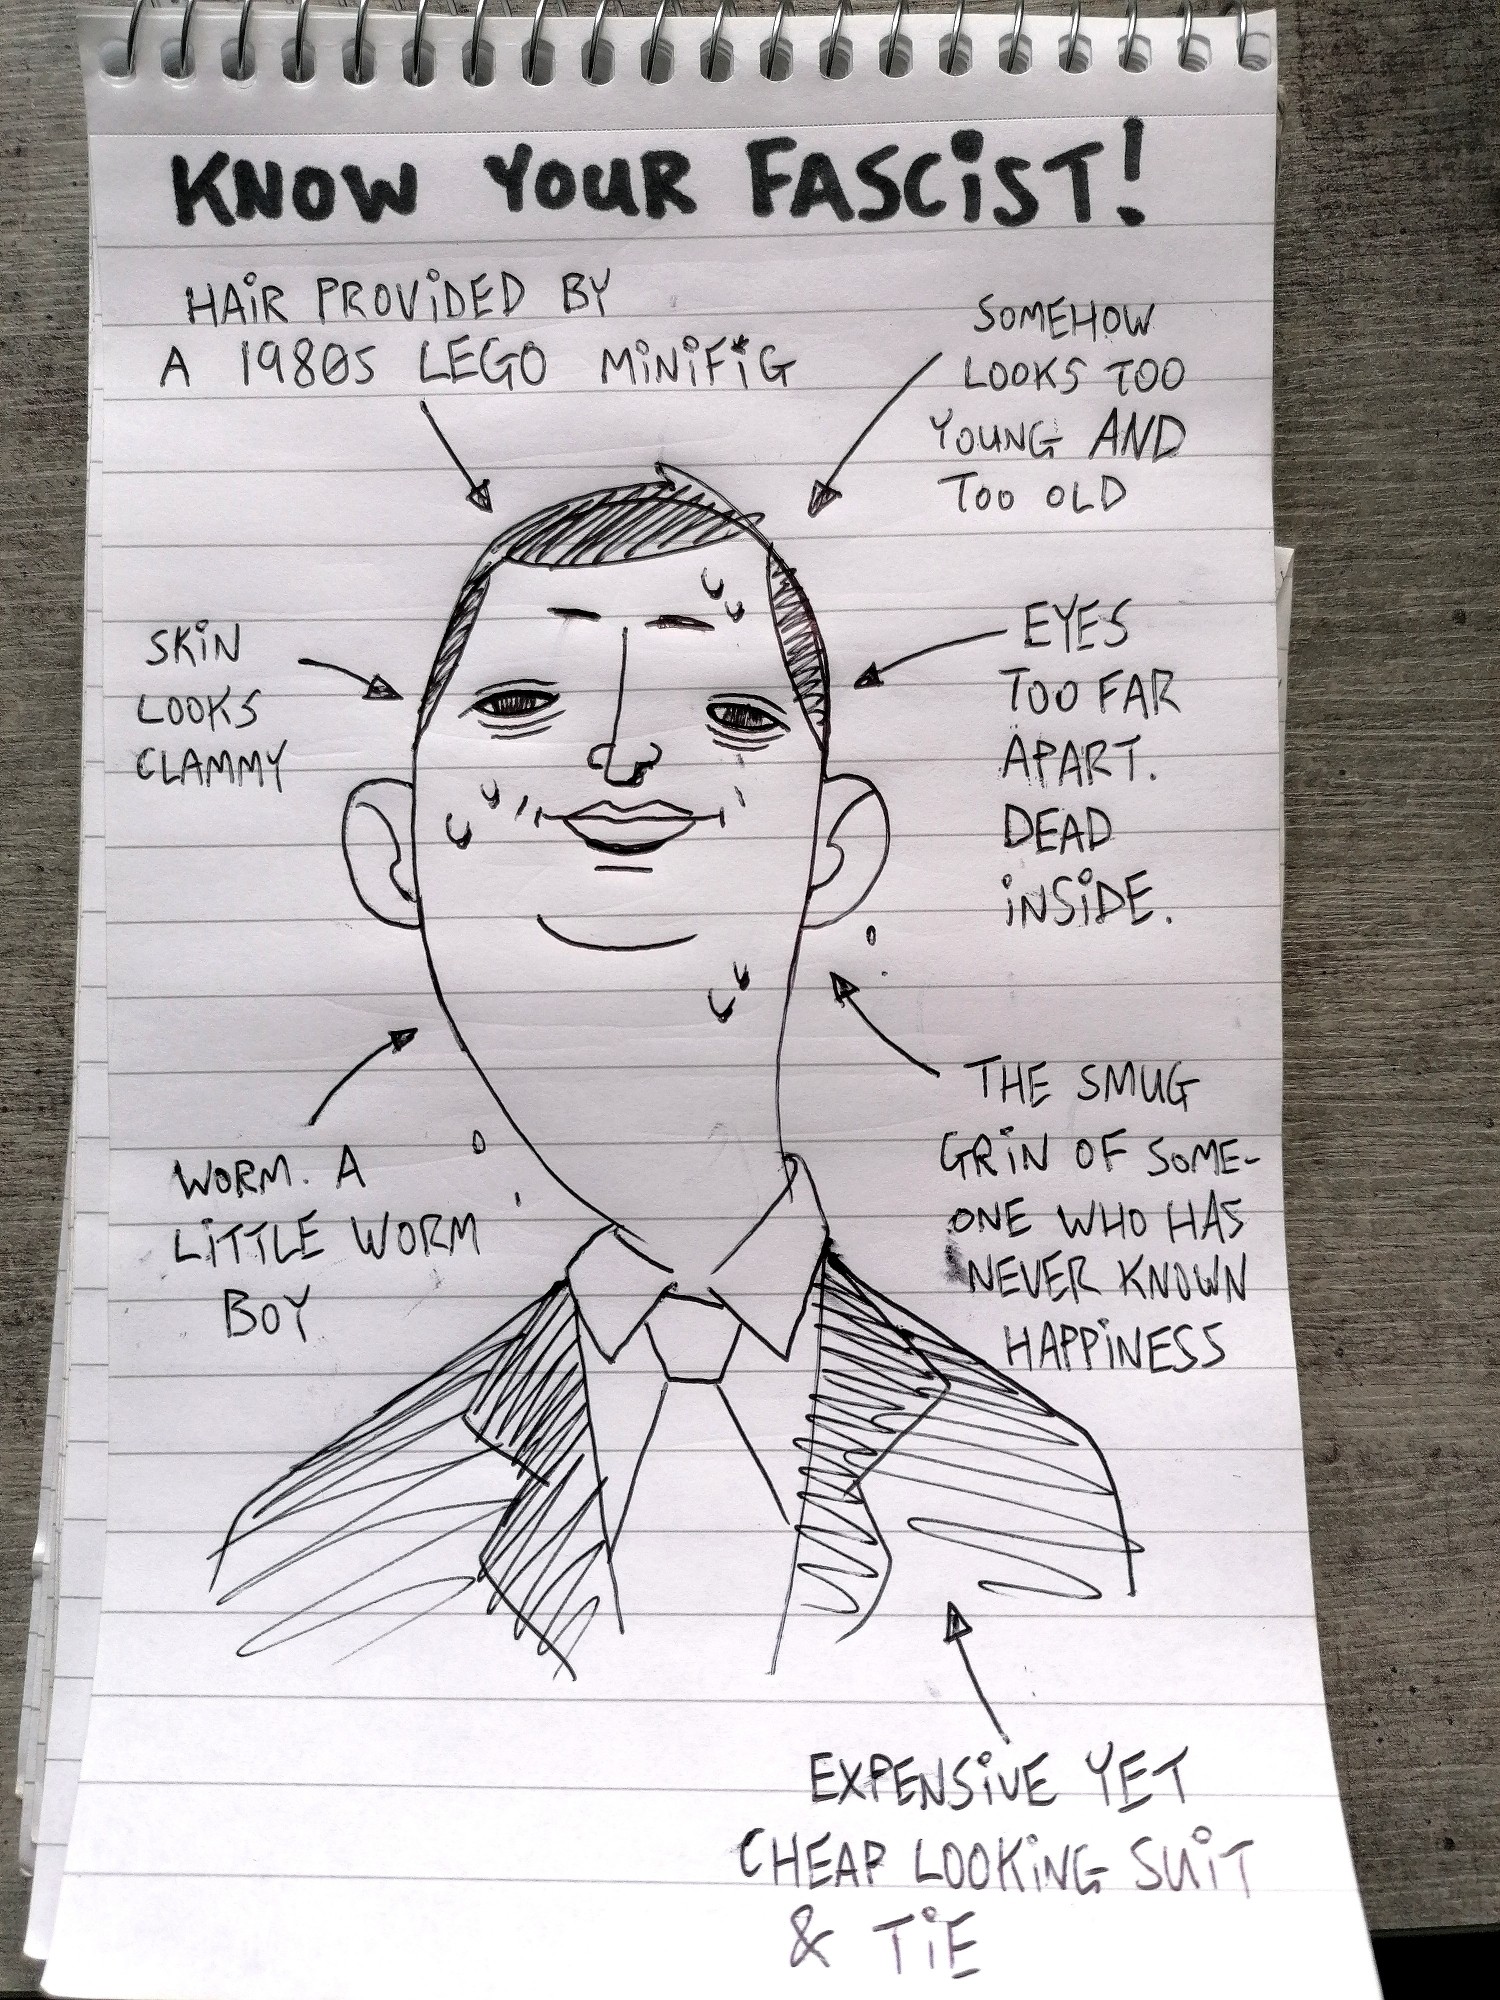 KNOW YOUR FASCIST!
HAIR PROVIDED BY
A 1980s LEGO MINIFIG
SOMEHOW
LOOKS TOO
YOUNG AND
TOO OLD
SKIN
LOOKS
CLAMMY
EYES
TOO FAR
APART.
DEAD
INSIDE.
WORM. A
LITTLE WORM
BOY
THE SMUG
GRIN OF SOME-
ONE WHO HAS
NEVER KNOWN
HAPPINESS
EXPENSIVE YET
CHEAP LOOKING SUIT
& TIE